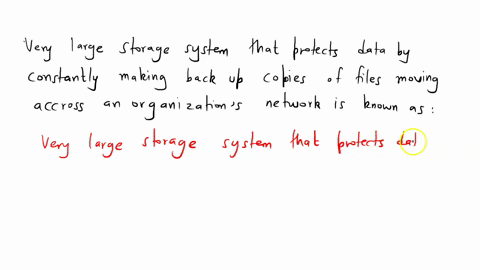 Very large storage system that protects data by
constantly making back up copies of files moving
accross an organization's network is known as:
Very large storage system that protects dat